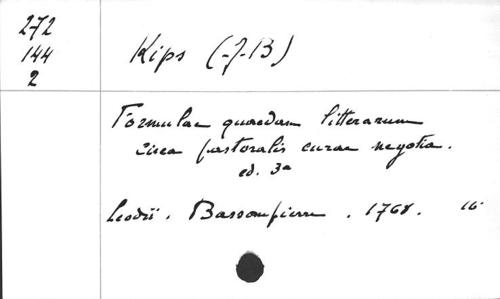 272
144
2
Kips (-J-B)
Formulae quaedam litterarum
circa pastoralis curae negotia.
ed. 3a
Leodii. Bassompierre. 1768. 16